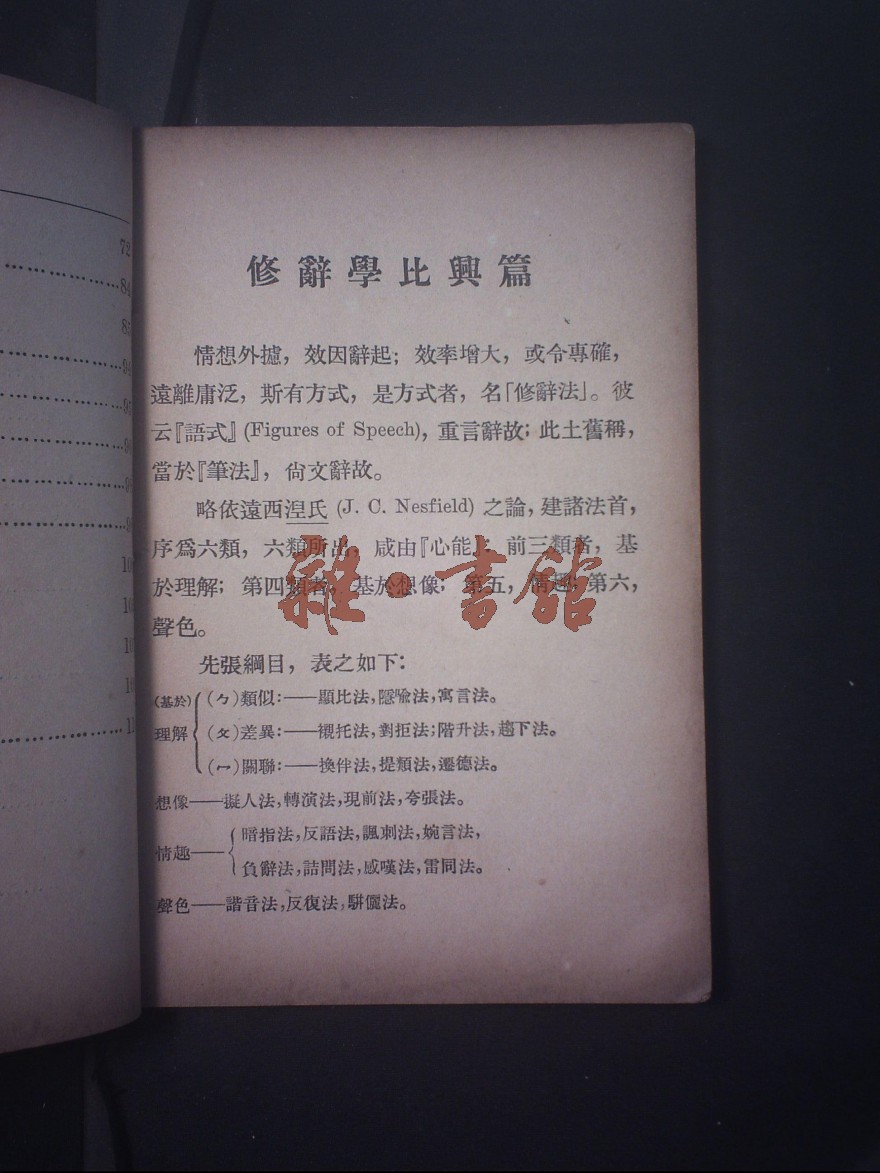 72
84
修辭學比興篇
情想外攄，效因辭起；效率增大，或令專確，
遠離庸泛，斯有方式，是方式者，名「修辭法」。彼
云『語式』(Figures of Speech)，重言辭故；此土舊稱，
當於『筆法』，尙文辭故。
略依遠西湼氏 (J. C. Nesfield) 之論，建諸法首，
序爲六類，六類所出，咸由『心能』：前三類者，基
於理解；第四類者，基於想像；第五，情趣；第六，
聲色。
先張綱目，表之如下：
(基於) (ㄅ)類似：——顯比法，隱喩法，寓言法。
理解 (ㄆ)差異：——襯托法，對拒法；階升法，趨下法。
(ㄇ)關聯：——換伴法，提類法，遷德法。
想像——擬人法，轉演法，現前法，夸張法。
情趣—— 暗指法，反語法，諷刺法，婉言法，
負辭法，詰問法，感嘆法，雷同法。
聲色——諧音法，反復法，駢儷法。
雜·書館